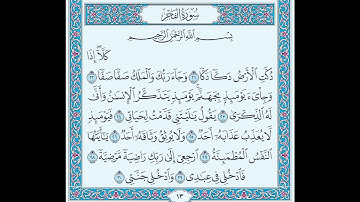 سُورَةُ الفَجْرِ
بِسْمِ اللَّهِ الرَّحْمَٰنِ الرَّحِيمِ
كَلَّا إِذَا
دُكَّتِ الْأَرْضُ دَكًّا دَكًّا ٢١ وَجَاءَ رَبُّكَ وَالْمَلَكُ صَفًّا صَفًّا ٢٢
وَجِاْىءَ يَوْمَئِذٍ بِجَهَنَّمَ يَوْمَئِذٍ يَتَذَكَّرُ الْإِنسَٰنُ وَأَنَّىٰ لَهُ
الذِّكْرَىٰ ٢٣ يَقُولُ يَٰلَيْتَنِى قَدَّمْتُ لِحَيَاتِى ٢٤ فَيَوْمَئِذٍ
لَّا يُعَذِّبُ عَذَابَهُ أَحَدٌ ٢٥ وَلَا يُوثِقُ وَثَاقَهُ أَحَدٌ ٢٦ يَٰأَيَّتُهَا
النَّفْسُ الْمُطْمَئِنَّةُ ٢٧ ارْجِعِى إِلَىٰ رَبِّكِ رَاضِيَةً مَّرْضِيَّةً ٢٨
فَادْخُلِى فِى عِبَٰدِى ٢٩ وَادْخُلِى جَنَّتِى ٣٠
١٣